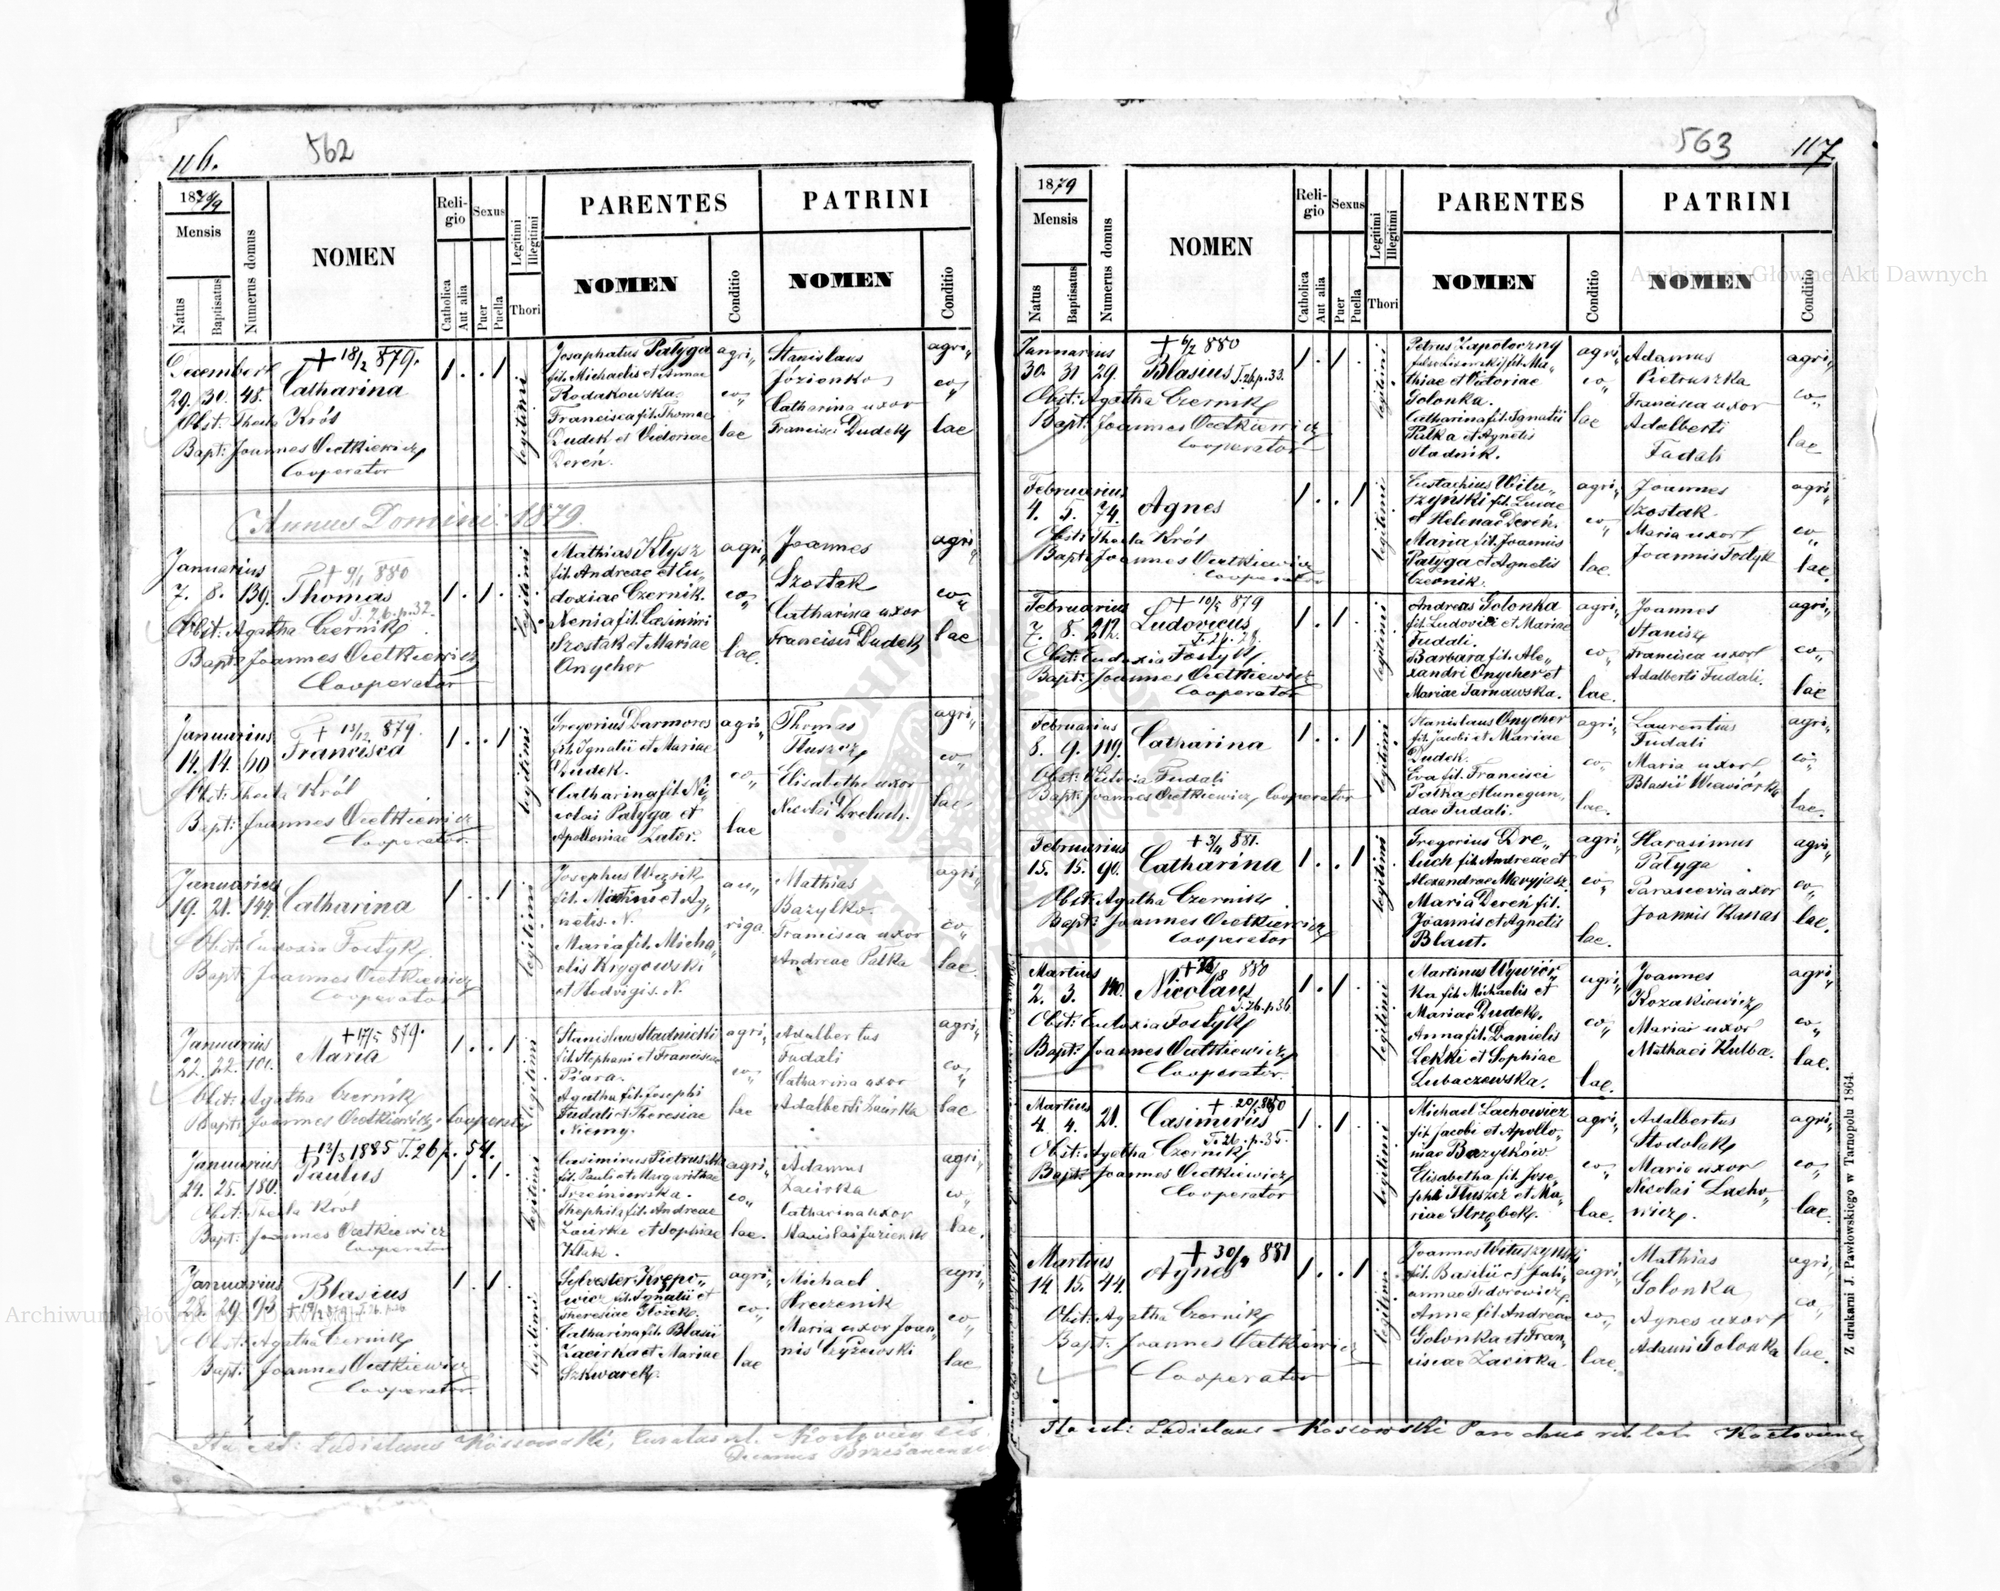 116.
562
1878/9
Mensis
Natus
Baptisatus
Numerus domus
NOMEN
Religio
Catholica
Aut alia
Sexus
Puer
Puella
Legitimi
Illegitimi
Thori
PARENTES
NOMEN
Conditio
PATRINI
NOMEN
Conditio
Decembris
29. 30. 48.
+ 18/2 879.
Catharina
Obst: Thecla Król
Bapt: Joannes Cietkiewicz
Cooperator
1 . . 1
legitimi
Josaphatus Patyga
fil. Michaelis et Annae
Rodakowska.
Francisca fil. Thomae
Dudek et Victoriae
Dereń.
agri„
co„
lae
Stanislaus
Józienko
Catharina uxor
Francisci Dudek
agri„
co„
lae
Annus Domini 1879.
Januarius
7. 8. 139.
+ 9/1 880
Thomas
T. 26. p. 32.
Obst: Agatha Czernik
Bapt: Joannes Cietkiewicz
Cooperator
1 . 1 .
legitimi
Mathias Kłysz
fil. Andreae et Eu„
doxiae Czernik.
Xenia fil. Casimiri
Szostak et Mariae
Onycher
agri„
co„
lae.
Joannes
Szostak
Catharina uxor
Francisci Dudek
agri„
co„
lae
Januarius
14. 14. 60
+ 13/12 879.
Francisca
Obst: Thecla Król
Bapt: Joannes Cietkiewicz
Cooperator.
1 . . 1
legitimi
Gregorius Darmores
fil. Ignatii et Mariae
Dudek.
Catharina fil. Ni„
colai Patyga et
Apolloniae Zator.
agri„
co„
lae
Thomas
Tłuszcz
Elisabetha uxor
Nicolai Dreluch.
agri„
co„
lae
Januarius
19. 21. 144.
Catharina
Obst: Eudoxia Fostyk
Bapt: Joannes Cietkiewicz
Cooperator
1 . . 1
legitimi
Josephus Węzsik
fil. Martini et Ag„
netis. N.
Maria fil. Micha„
elis Krygowski
et Hedvigis. N.
au„
riga.
Mathias
Bazylko.
Francisca uxor
Andreae Pałka
agri„
co„
lae
Januarius
22. 22. 101.
+ 17/5 879.
Maria
Obst: Agatha Czernik
Bapt: Joannes Cietkiewicz, Cooperator
1 . . 1
legitimi
Stanislaus Stadnicki
fil. Stephani et Franciscae
Piara.
Agatha fil. Josephi
Fudali et Theresiae
Niemy.
agri„
co„
lae
Adalbertus
Fudali
Catharina uxor
Adalberti Zacirka
agri„
co„
lae
Januarius
24. 25. 180.
+ 13/3 1885 T. 26 p. 54.
Paulus
Obst: Thecla Król
Bapt: Joannes Cietkiewicz
Cooperator
1 . 1 .
legitimi
fil. Pauli et Margarithae
Theophila fil. Andreae
Zacirka et Sophiae
agri„
co„
lae.
Adamus
Zacirka
Catharina uxor
Stanislai Józienko
agri„
co„
lae.
Januarius
28. 29. 93
Blasius
Obst: Agatha Czernik
Bapt: Joannes Cietkiewicz
Cooperator
1 . 1 .
legitimi
Sylvester Krępo„
wicz fil. Ignatii et
Theresiae Tłożek.
Catharina fil. Blasii
Zacirka et Mariae
Szkwarek.
agri„
co„
lae
Michael
Hreczenik
Maria uxor Joan„
nis Czyżowski
agri„
co„
lae
Ita est: Ladislaus Kossowski, Curatus rl. Kozłoviensis
Decanus Brzeżanensis
563
117.
1879
Mensis
Natus
Baptisatus
Numerus domus
NOMEN
Religio
Catholica
Aut alia
Sexus
Puer
Puella
Legitimi
Illegitimi
Thori
PARENTES
NOMEN
Conditio
PATRINI
NOMEN
Conditio
Januarius
30. 31 29.
+ 6/2 880
Blasius T. 26 p. 33.
Obst: Agatha Czernik
Bapt: Joannes Cietkiewicz
Cooperator
1 . 1 .
legitimi
Petrus Zapotoczny
thiae et Victoriae
Golonka.
Catharina fil. Ignatii
Pałka et Agnetis
Stadnik.
agri„
co„
lae
Adamus
Pietruszka
Francisca uxor
Adalberti
Fudali
agri„
co„
lae
Februarius
4. 5. 74.
Agnes
Obst: Thecla Król
Bapt: Joannes Cietkiewicz
Cooperator
1 . . 1
legitimi
Eustachius Witu„
szynski fil. Lucae
et Helenae Dereń.
Maria fil. Joannis
Patyga et Agnetis
Czernik.
agri„
co„
lae.
Joannes
Szostak.
Maria uxor
Joannis Fostyk
agri„
co„
lae.
Februarius
7. 8. 212.
+ 10/5 879
Ludovicus
T. 26. 28.
Obst: Eudoxia Fostyk
Bapt: Joannes Cietkiewicz
Cooperator
1 . 1 .
legitimi
Andreas Golonka
fil. Ludovici et Mariae
Fudali.
Barbara fil. Ale„
xandri Onycher et
Mariae Tarnawska.
agri„
co„
lae.
Joannes
Stanisz
Francisca uxor
Adalberti Fudali.
agri„
co„
lae
Februarius
8. 9. 119.
Catharina
Obst: Victoria Fudali
Bapt: Joannes Cietkiewicz, Cooperator
1 . . 1
legitimi
Stanislaus Onycher
fil. Jacobi et Mariae
Dudek.
Eva fil. Francisci
Pałka et Cunegun„
dae Fudali.
agri„
co„
lae.
Laurentius
Fudali
Maria uxor
Blasii Wawiórka
agri„
co„
lae.
Februarius
15. 15. 90.
+ 3/4 881.
Catharina
Obst: Agatha Czernik
Bapt: Joannes Cietkiewicz
Cooperator
1 . . 1
legitimi
Gregorius Dre„
luch fil. Andreae et
Alexandrae Mavyjasz
Maria Dereń fil.
Joannis et Agnetis
Blaut.
agri„
co„
lae.
Harasimus
Patyga
Parascevia uxor
Joannis Kunas
agri„
co„
lae.
Martius
2. 3. 140.
Nicolaus
T. 26. p. 36
Obst: Eudoxia Fostyk
Bapt: Joannes Cietkiewicz
Cooperator.
1 . 1 .
legitimi
Martinus Wywiór„
ka fil. Michaelis et
Mariae Dudek.
Anna fil. Danielis
Lekki et Sophiae
Lubaczewska.
agri„
co„
lae.
Joannes
Kozakiewicz
Maria uxor
Mathaei Kulba.
agri„
co„
lae.
Martius
4. 4. 21.
Casimirus
T. 26. p. 35.
Obst: Agatha Czernik
Bapt: Joannes Cietkiewicz
Cooperator
1 . 1 .
legitimi
Michael Lachowicz
fil. Jacobi et Apollo„
niae Bazylków
Elisabetha fil. Jose„
phi Tłuszcz et Ma„
riae Strzębek.
agri„
co„
lae.
Adalbertus
Stodolak
Maria uxor
Nicolai Lacho„
wicz.
agri„
co„
lae.
Martius
14. 15. 44.
+ 30/4 881
Agnes
Obst: Agatha Czernik
Bapt: Joannes Cietkiewicz
Cooperator
1 . . 1
legitimi
Joannes Wituszynski
fil. Basilii et Juli„
annae Fedorowicz.
Anna fil. Andreae
Golonka et Fran„
ciscae Zacirka.
agri„
co„
lae.
Mathias
Golonka
Agnes uxor
Adami Golonka
agri„
co„
lae.
Ita est: Ladislaus Kossowski Parochus rit. lat. Kozłoviensis
Z drukarni J. Pawłowskiego w Tarnopolu 1864.
Archiwum Główne Akt Dawnych
Archiwum Główne Akt Dawnych